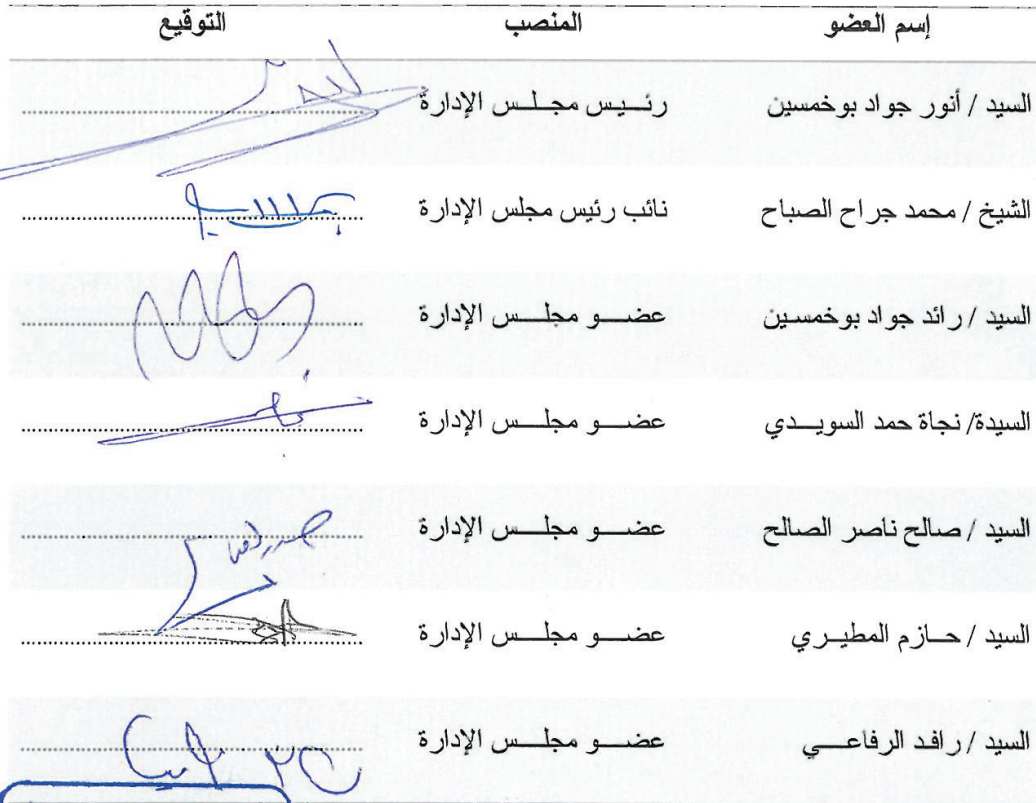 إسم العضو المنصب التوقيع
السيد / أنور جواد بوخمسين رئـيس مجـلـس الإدارة
الشيخ / محمد جراح الصباح نائب رئيس مجلس الإدارة
السيد / رائد جواد بوخمسين عضـو مجلـس الإدارة
السيدة/ نجاة حمد السويـدي عضـو مجلـس الإدارة
السيد / صالح ناصر الصالح عضـو مجلـس الإدارة
السيد / حـازم المطيـري عضـو مجلـس الإدارة
السيد / رافد الرفاعـي عضـو مجلـس الإدارة